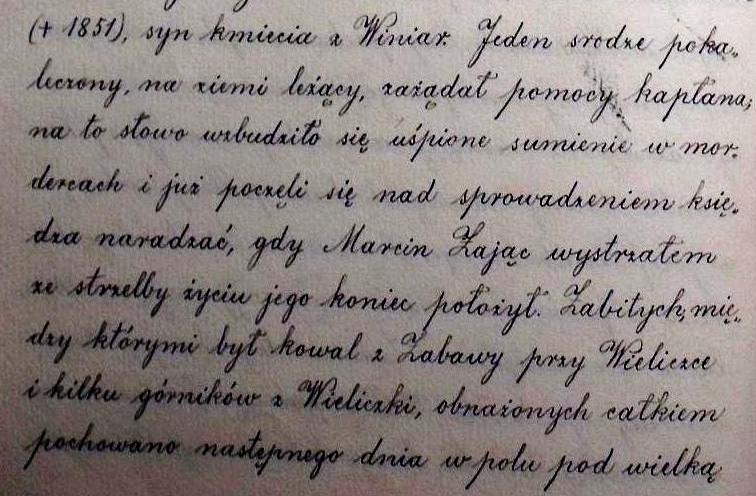 (+ 1851), syn kmiecia z Winiar. Jeden srodze poka-
leczony, na ziemi leżący, zażądał pomocy kapłana,
na to słowo wzbudziło się uśpione sumienie w mor-
dercach i już poczęli się nad sprowadzeniem księ-
dza naradzać, gdy Marcin Zając wystrzałem
ze strzelby życiu jego koniec położył. Zabitych, mię-
dzy którymi był kowal z Zabawy przy Wieliczce
i kilku górników z Wieliczki, obnażonych całkiem
pochowano następnego dnia w polu pod wielką